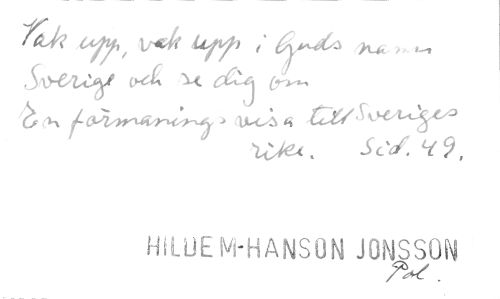 Vak upp, vak upp i Guds namn
Sverige och se dig om
En förmanings visa till Sveriges
rike. Sid. 49.
HILDE M-HANSON JONSSON
Pol.